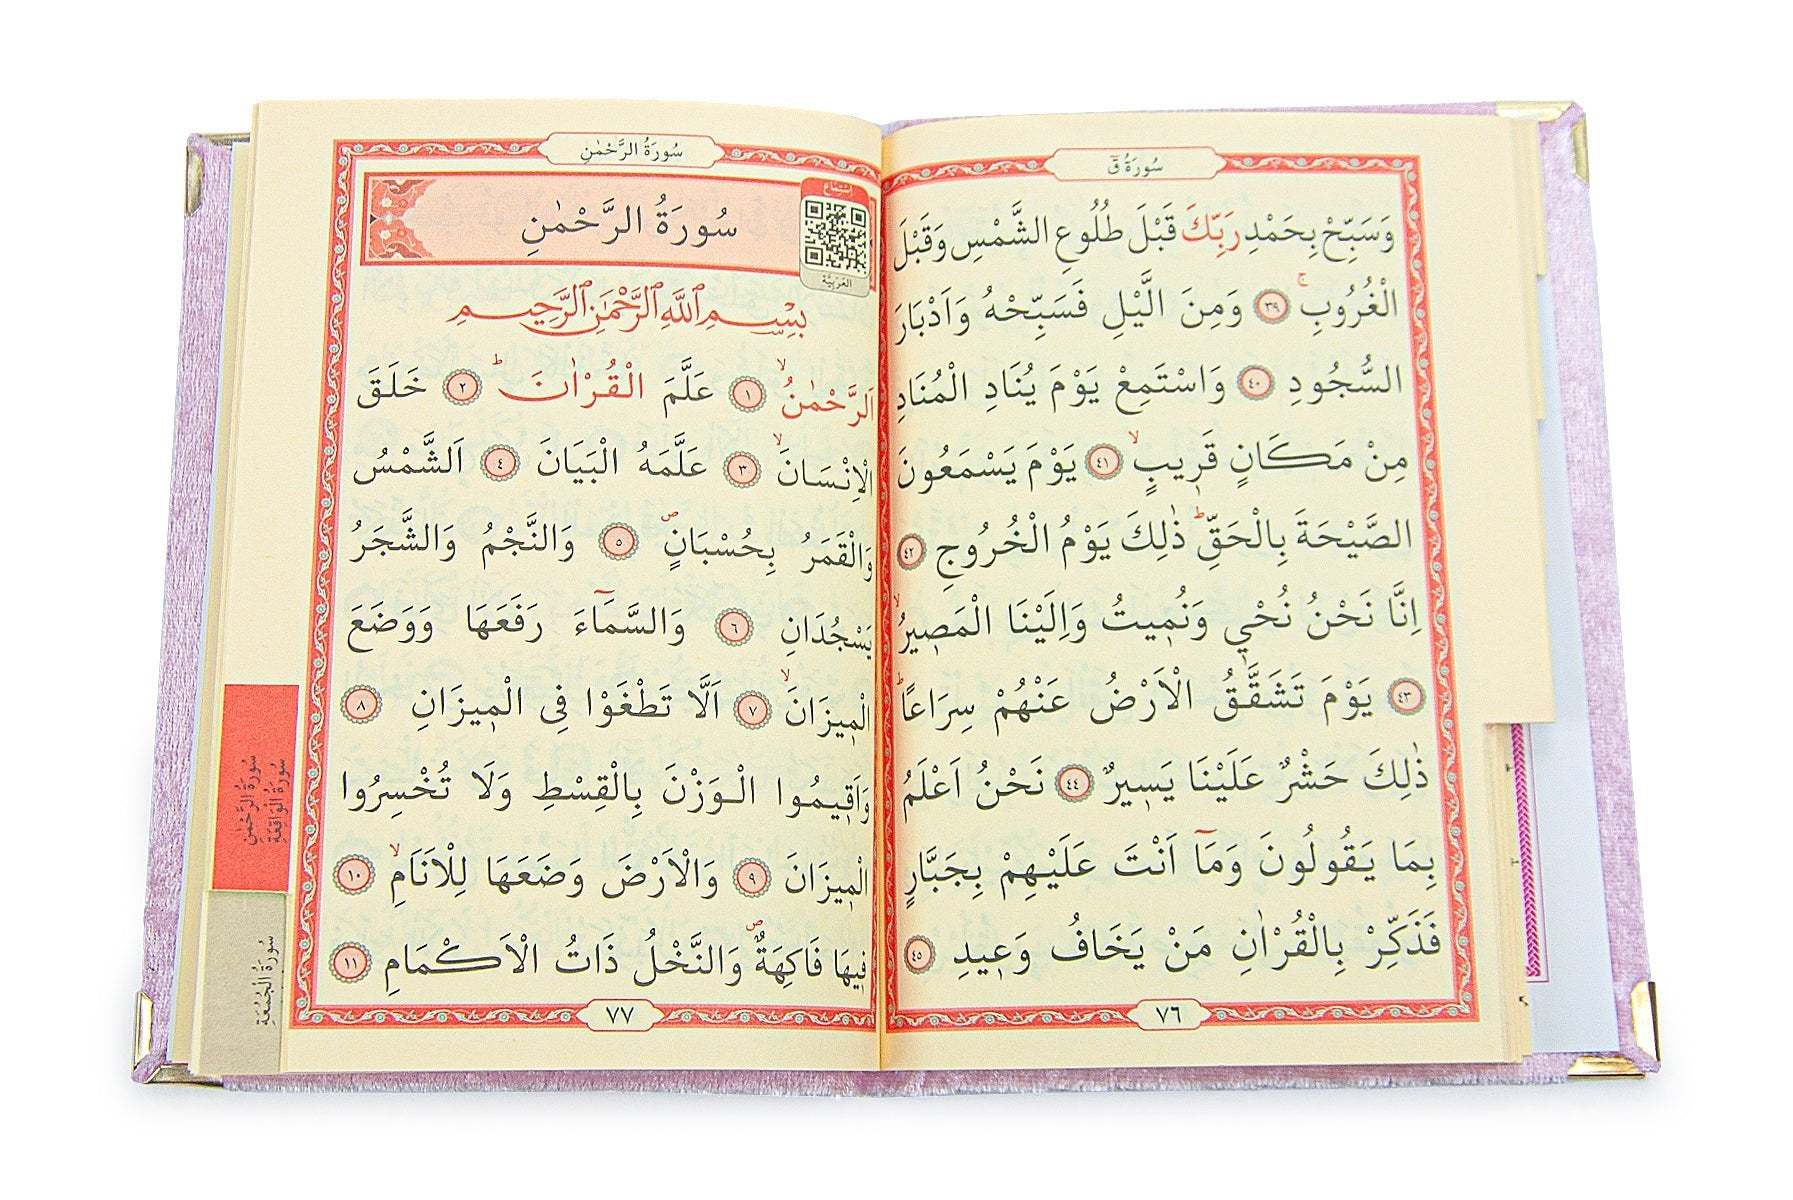 سُورَةُ قٓ
وَسَبِّحْ بِحَمْدِ رَبِّكَ قَبْلَ طُلُوعِ الشَّمْسِ وَقَبْلَ
الْغُرُوبِۚ ﴿٣٩﴾ وَمِنَ الَّيْلِ فَسَبِّحْهُ وَاَدْبَارَ
السُّجُودِ ﴿٤٠﴾ وَاسْتَمِعْ يَوْمَ يُنَادِ الْمُنَادِ
مِنْ مَكَانٍ قَر۪يبٍۙ ﴿٤١﴾ يَوْمَ يَسْمَعُونَ
الصَّيْحَةَ بِالْحَقِّۜ ذٰلِكَ يَوْمُ الْخُرُوجِ ﴿٤٢﴾
اِنَّا نَحْنُ نُحْي۪ وَنُم۪يتُ وَاِلَيْنَا الْمَص۪يرُۙ
﴿٤٣﴾ يَوْمَ تَشَقَّقُ الْاَرْضُ عَنْهُمْ سِرَاعًاۜ
ذٰلِكَ حَشْرٌ عَلَيْنَا يَس۪يرٌ ﴿٤٤﴾ نَحْنُ اَعْلَمُ
بِمَا يَقُولُونَ وَمَٓا اَنْتَ عَلَيْهِمْ بِجَبَّارٍ
فَذَكِّرْ بِالْقُرْاٰنِ مَنْ يَخَافُ وَع۪يدِ ﴿٤٥﴾
٧٦
سُورَةُ الرَّحْمٰنِ
سُورَةُ الرَّحْمٰنِ
اِسْتِمَاع
العَرَبِيَّة
بِسْمِ اللّٰهِ الرَّحْمٰنِ الرَّحِيمِ
اَلرَّحْمٰنُۙ ﴿١﴾ عَلَّمَ الْقُرْاٰنَۜ ﴿٢﴾ خَلَقَ
الْاِنْسَانَۙ ﴿٣﴾ عَلَّمَهُ الْبَيَانَ ﴿٤﴾ اَلشَّمْسُ
وَالْقَمَرُ بِحُسْبَانٍۖ ﴿٥﴾ وَالنَّجْمُ وَالشَّجَرُ
يَسْجُدَانِ ﴿٦﴾ وَالسَّمَٓاءَ رَفَعَهَا وَوَضَعَ
الْم۪يزَانَۙ ﴿٧﴾ اَلَّا تَطْغَوْا فِي الْم۪يزَانِ ﴿٨﴾
وَاَق۪يمُوا الْوَزْنَ بِالْقِسْطِ وَلَا تُخْسِرُوا
الْم۪يزَانَ ﴿٩﴾ وَالْاَرْضَ وَضَعَهَا لِلْاَنَامِۙ ﴿١٠﴾
ف۪يهَا فَاكِهَةٌۖ وَالنَّخْلُ ذَاتُ الْاَكْمَامِ ﴿١١﴾
٧٧
سُورَةُ الرَّحْمٰنِ
سُورَةُ الْوَاقِعَةِ
سُورَةُ الْجُمُعَةِ